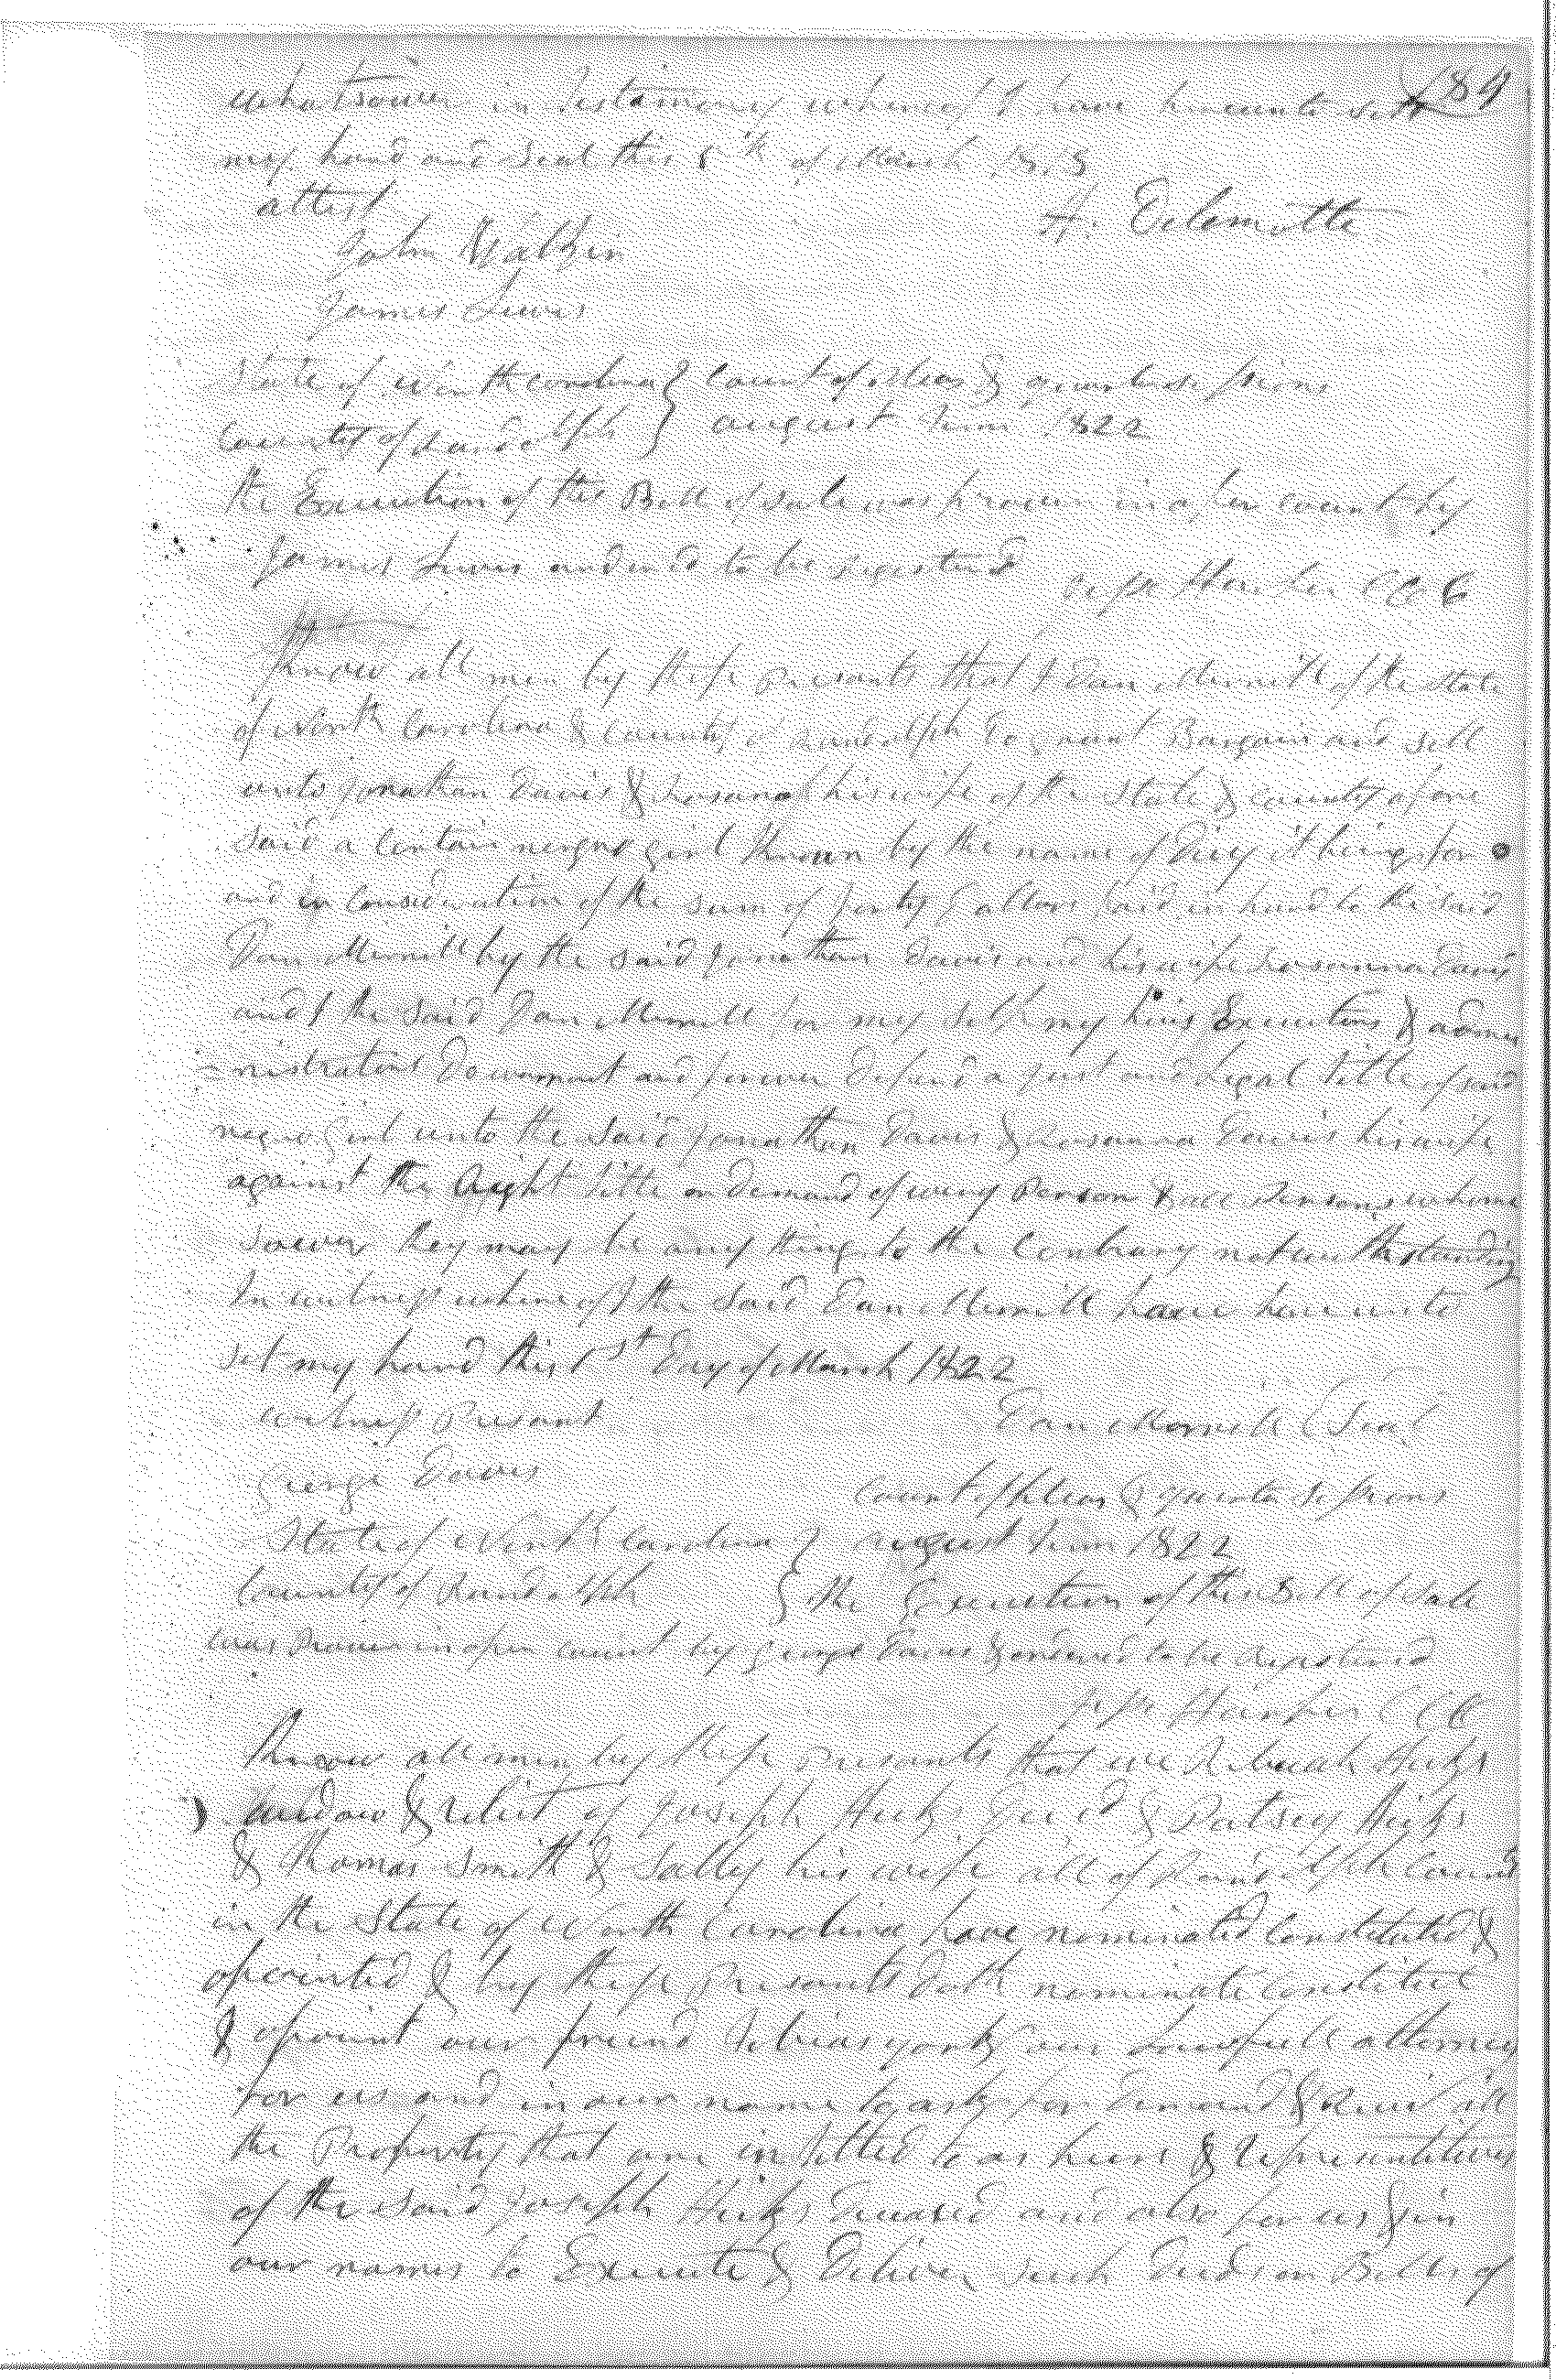 189
whatsoever in Testamony whereof I have hereunto set
my hand and Seal this 5th of March 1818
attest
A: Delamotte
John
James Lewis
State of North Carolina } Court of Pleas & quarter sessions
County of Randolph } august Term 1822
the Execution of the Bill of sale was proven in open court by
James Lewis and ord to be Registerd
Jesse Harper CCC
Know all men by these presants that I Dan Merrill of the State
of North Carolina & County of Randolph do grant Bargain and sell
unto Jonathan Davis & Rosanah his wife of the State & county afore
said a Certain negro girl known by the name of Dicy it being for
and in Consideration of the sum of forty Dollars paid in hand to the said
Dan Merrill by the said Jonathan Davis and his wife Rosanna Davis
and I the said Dan Merrill for my self my heirs Executors & admi
=nistrators Do warrant and forever defend a just and Legal title of said
negro girl unto the said Jonathan Davis & Rosanna Davis his wife
against the Right title or demand of every Person & all Persons whom
soever they may be any thing to the Contrary notwithstanding
In witness whereof I the said Dan Merrill have hereunto
set my hand this 1st Day of March 1822
witness Presant
Dan Merrill (Seal)
George Davis
Court of Pleas & quarter sessions
State of North Carolina } august Term 1822
County of Randolph } the Execution of this Bill of Sale
was Proven in open court by George Davis & ordered to be Registered
Jesse Harper CCC
Know all men by these presants that we Rebecah Hicks
widow & relict of Joseph Hicks Decd & Patsey Hicks
& Thomas Smith & Sally his wife all of Randolph County
in the State of North Carolina have nominated Constituted &
apointed & by these presants doth nominate constitute
& apoint our friend york our Lawfull attorney
for us and in our name to ask for demand & Receive all
the Property that are intitled to as heirs & representatives
of the said Joseph Hicks Deceased and also for us & in
our names to Execute & Deliver such Deeds or Bills of